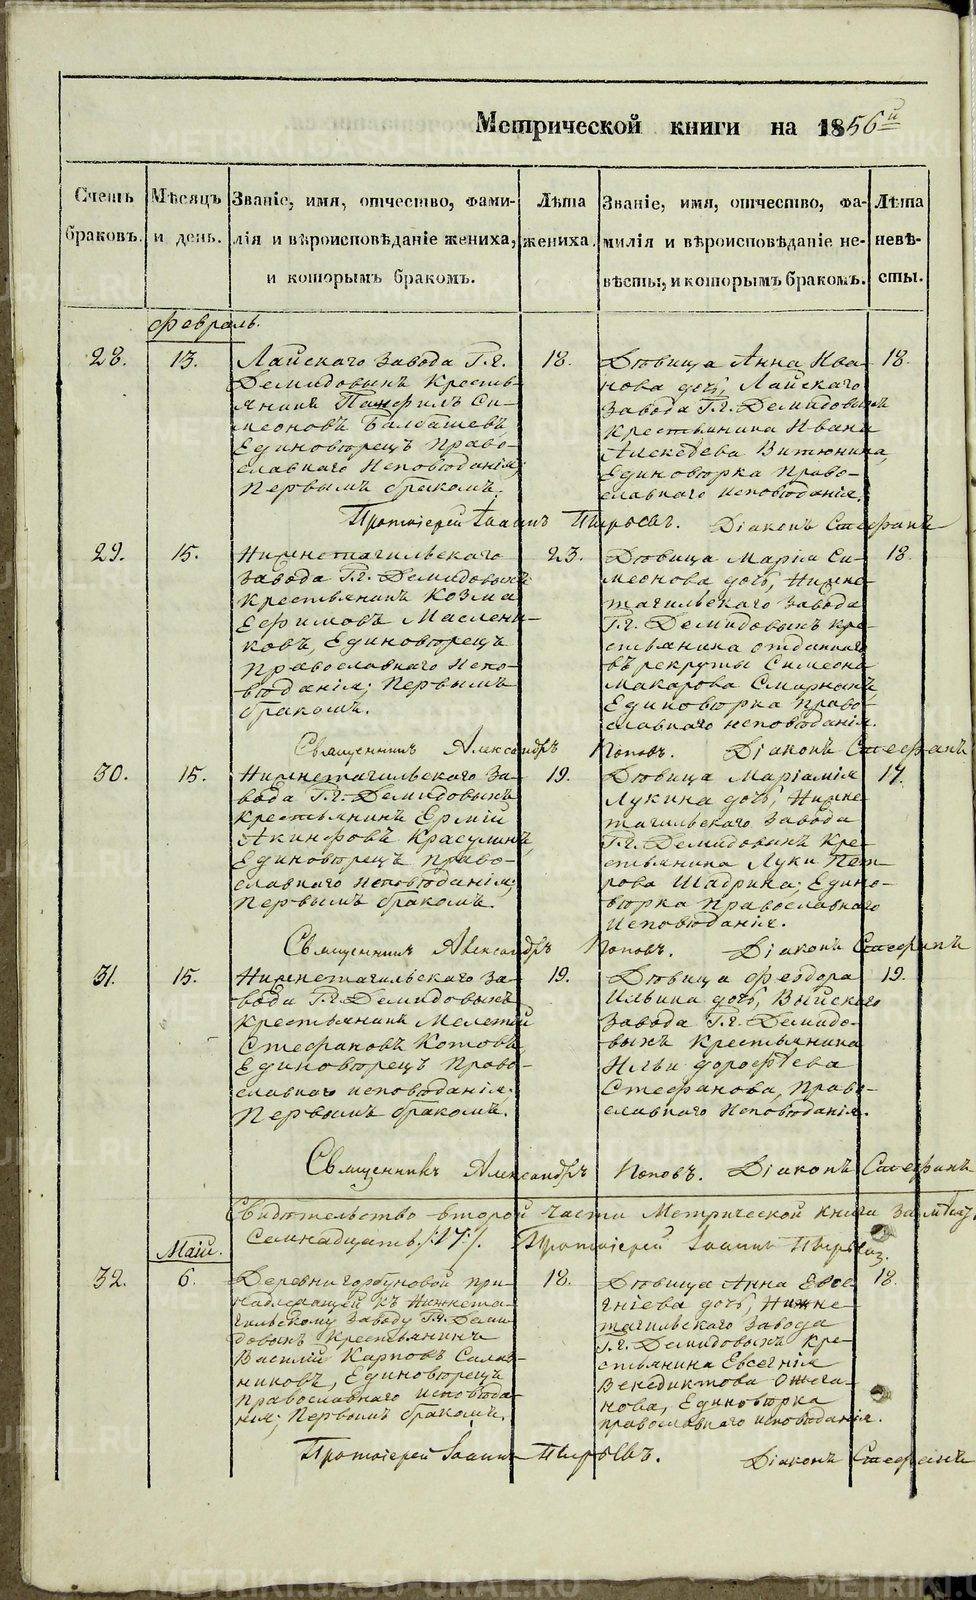 Метрической книги на 1856й
Счетъ браковъ.
Мѣсяцъ и день.
Званіе, имя, отчество, фами-
лія и вѣроисповѣданіе жениха,
и которымъ бракомъ.
Лѣта жениха.
Званіе, имя, отчество, фа-
милія и вѣроисповѣданіе не-
вѣсты, и которымъ бракомъ.
Лѣта невѣ-
сты.
Февраль.
28.
13.
Лайскаго завода Г.г.
Демидовыхъ Кресть-
янинъ Панфилъ Си-
меоновъ Балбашевъ
Единовѣрецъ Право-
славнаго Исповѣданія;
Первымъ бракомъ.
18.
Дѣвица Анна Ива-
нова дочь, Лайскаго
завода Г.г. Демидовыхъ
Крестьянина Ивана
Алексѣева Витюнина,
Единовѣрка Право-
славнаго исповѣданія.
18.
Протоіерей Іоаннъ Пырьевъ. Діаконъ Стефанъ
29.
15.
Нижнетагильскаго
завода Г.г. Демидовыхъ
Крестьянинъ Козма
Ефимовъ Маслени-
ковъ, Единовѣрецъ
Православнаго Испо-
вѣданія; Первымъ
бракомъ.
23.
Дѣвица Марія Си-
меонова дочь, Нижне-
тагильскаго завода
Г.г. Демидовыхъ кре-
стьянина отданнаго
въ рекруты Симеона
Макарова
Единовѣрка Право-
славнаго исповѣданія.
18.
Священникъ Александръ Поповъ. Діаконъ Стефанъ
30.
15.
Нижнетагильскаго За-
вода Г.г. Демидовыхъ
Крестьянинъ Ермій
Акинфовъ Красулинъ,
Единовѣрецъ Право-
славнаго исповѣданія;
Первымъ бракомъ.
19.
Дѣвица Маріамія
Лукина дочь, Нижне-
тагильскаго завода
Г.г. Демидовыхъ Кре-
стьянина Луки Пет-
рова Шадрина; Едино-
вѣрка Православнаго
Исповѣданія.
17.
Священникъ Александръ Поповъ. Діаконъ Стефанъ
31.
15.
Нижнетагильскаго За-
вода Г.г. Демидовыхъ
Крестьянинъ Мелетій
Стефановъ Котовъ
Единовѣрецъ Право-
славнаго исповѣданія;
Первымъ бракомъ.
19.
Дѣвица Феодора
Ильина дочь, Выйскаго
Завода Г.г. Демидо-
выхъ Крестьянина
Ильи Дорофѣева
Стефанова, Право-
славнаго Исповѣданія.
19.
Священникъ Александръ Поповъ. Діаконъ Стефанъ
Свидѣтельство второй части Метрической книги за
Семнадцать /:17:/. Протоіерей Іоаннъ Пырьевъ.
Маій.
32.
6.
Деревни Горбуновой при-
надлежащей къ Нижнета-
гильскому Заводу Г.г. Деми-
довыхъ Крестьянинъ
Василій Карповъ
Единовѣрецъ
Православнаго исповѣда-
нія; Первымъ бракомъ.
18.
Дѣвица Анна Евсе-
гніева дочь, Нижне-
тагильскаго завода
Г.г. Демидовыхъ Кре-
стьянина Евсегнія
Венедиктова Ожега-
нова, Единовѣрка
православнаго исповѣданія.
18.
Протоіерей Іоаннъ Пырьевъ. Діаконъ Стефанъ
METRIKI.GASO-URAL.RU